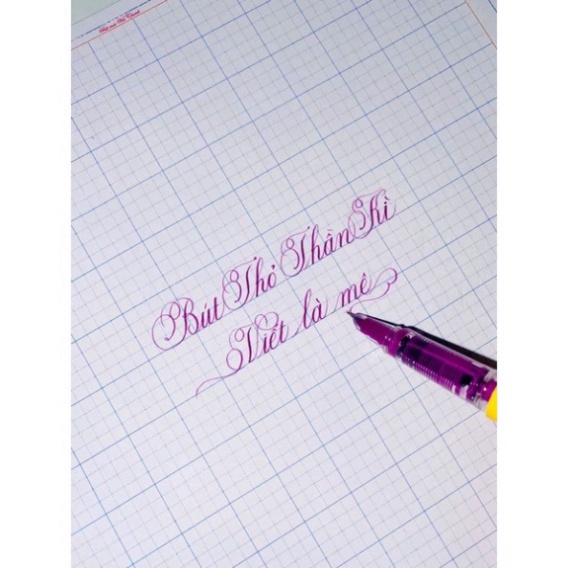 Bút Thỏ Thần Kì
Viết là mê